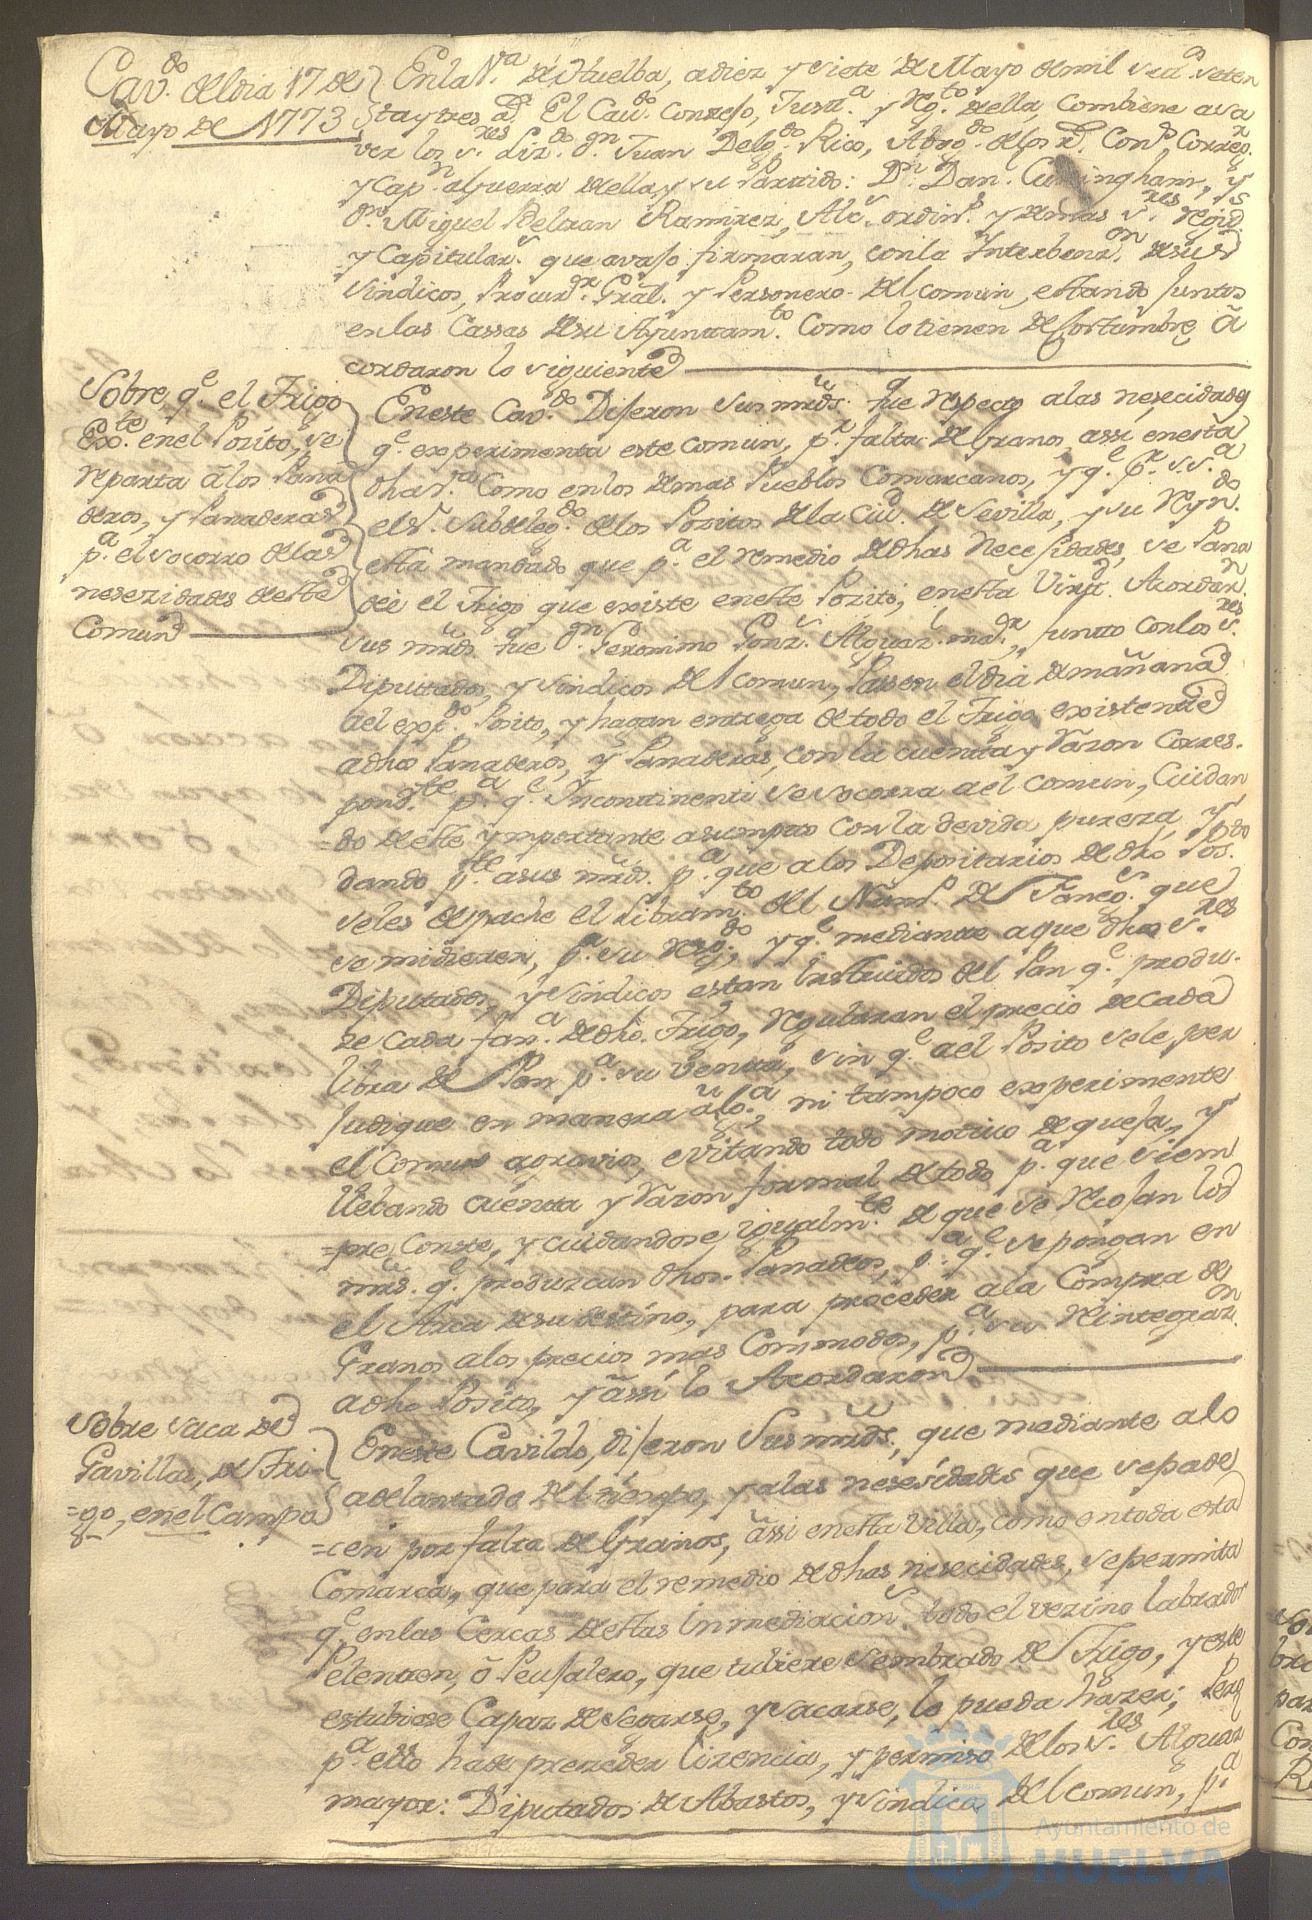 Cav.do del dia 17 de
Mayo de 1773
En la V.a de Huelba, a diez y siete de Mayo de mil set.s seten
ta y tres a.s El Cav.do Conzejo, Just.a y Reg.to de ella, combiene a sa
ver los s.res Liz.do D.n Juan Delg.do Rico, Abog.do de los R.s Con.s Correg.r
y Cap.n a Guerra de ella y su Partido: D.n Dan. Cunningham, y
D.n Miguel Beltran Ramirez, Alc.s ordin.s y demas s.res Regid.s
y Capitular.s que avajo firmaran, con la Interbenz.on de sus
Sindicos, Procur.dr Gral. y Personero del comun, estando juntos
en las Cassas de su Ayuntam.to Como lo tienen de costumbre a
cordaron lo siguiente
Sobre, q.e el Trigo
Ex.te en el Posito, se
reparta a los Pana
deros, y Panaderas
p.a el socorro de las
nesezidades de este
Comun
En este Cav.do Dijeron sus mrds. que respecto a las nesecidades
q.e experimenta este comun, p.r falta de Granos assi en esta
dha V.a Como en los demas Pueblos Comarcanos, y q.e p.r s.s.a
el s.r Subdeleg.do de los Pozitos de la Ciud. de Sevilla, y su Reyn.do
esta mandado que p.a el remedio de dhas Necesidades, se Pana
dee el Trigo que existe en este Pozito, en esta Virtd. Acordar.n
sus mrds. que D.n Geronimo Gonz.s Alguaz.l ma.r, junto con los s.res
Diputtados, y Sindicos del comun, Passen el dia de mañana
a el exp.do Posito, y hagan entrega de todo el Trigo existente
a dhos Panaderos, y Panaderas, con la cuenta y razon Corres.
pond.te p.a q.e Yncontinenti se socorra a el comun, Cuidan
=do de este ymportante asumpto con la devida pureza, y
dando p.te a sus mrds. p.a que a los Depositarios de dho Pos.do
se les despache el Libram.to del Num.o de Faneg.s que
se midieren, p.a su resg.do, y q.e mediante a que dhos s.res
Diputados, y Sindicos estan Instruidos del Pan q.e produ.
ze cada fan.a de dho. Trigo, regularan el precio de cada
libra de Pan p.a su Venta, sin q.e a el Posito se le per
judique en manera alg.a, ni tampoco experimente
el Comun agravios, evitando todo motivo de queja, y
llebando cuenta y razon formal de todo p.a que siem
=pre Conste, y cuidandose igualm.te de que se recojan los
mrs. q.e produzcan dhos. Panadeos, p.a q.e se pongan en
el Arca de su destino, para proceder a la Compra de
Granos a los precios mas Commodos, p.a su reintegraz.on
a dho Posito, y assi lo Acordaron
Sobre saca de
Gavilla, de Tri
=go, en el Campo
En este Cavildo, dijeron Sus mrds, que mediante a lo
adelantado del tiempo, y a las nesesidades que se pade
=cen por falta de Granos, assi en esta Villa, como en toda esta
Comarca, que para el remedio de dhas nesecidades, se permita
q.e en las Cercas de estas Inmediacion.s todo el vezino labrador
Pelentren, ó Peujalero, que tubiere sembrado de Trigo, y este
estubiese Capaz de Segarse, y sacarse, lo pueda hazer; Pero
p.a ello ha de preceder lizencia, y permiso de los s.res Alguaz
mayor: Diputados de Abastos, y Sindico del Comun, p.a
Ayuntamiento de
HUELVA